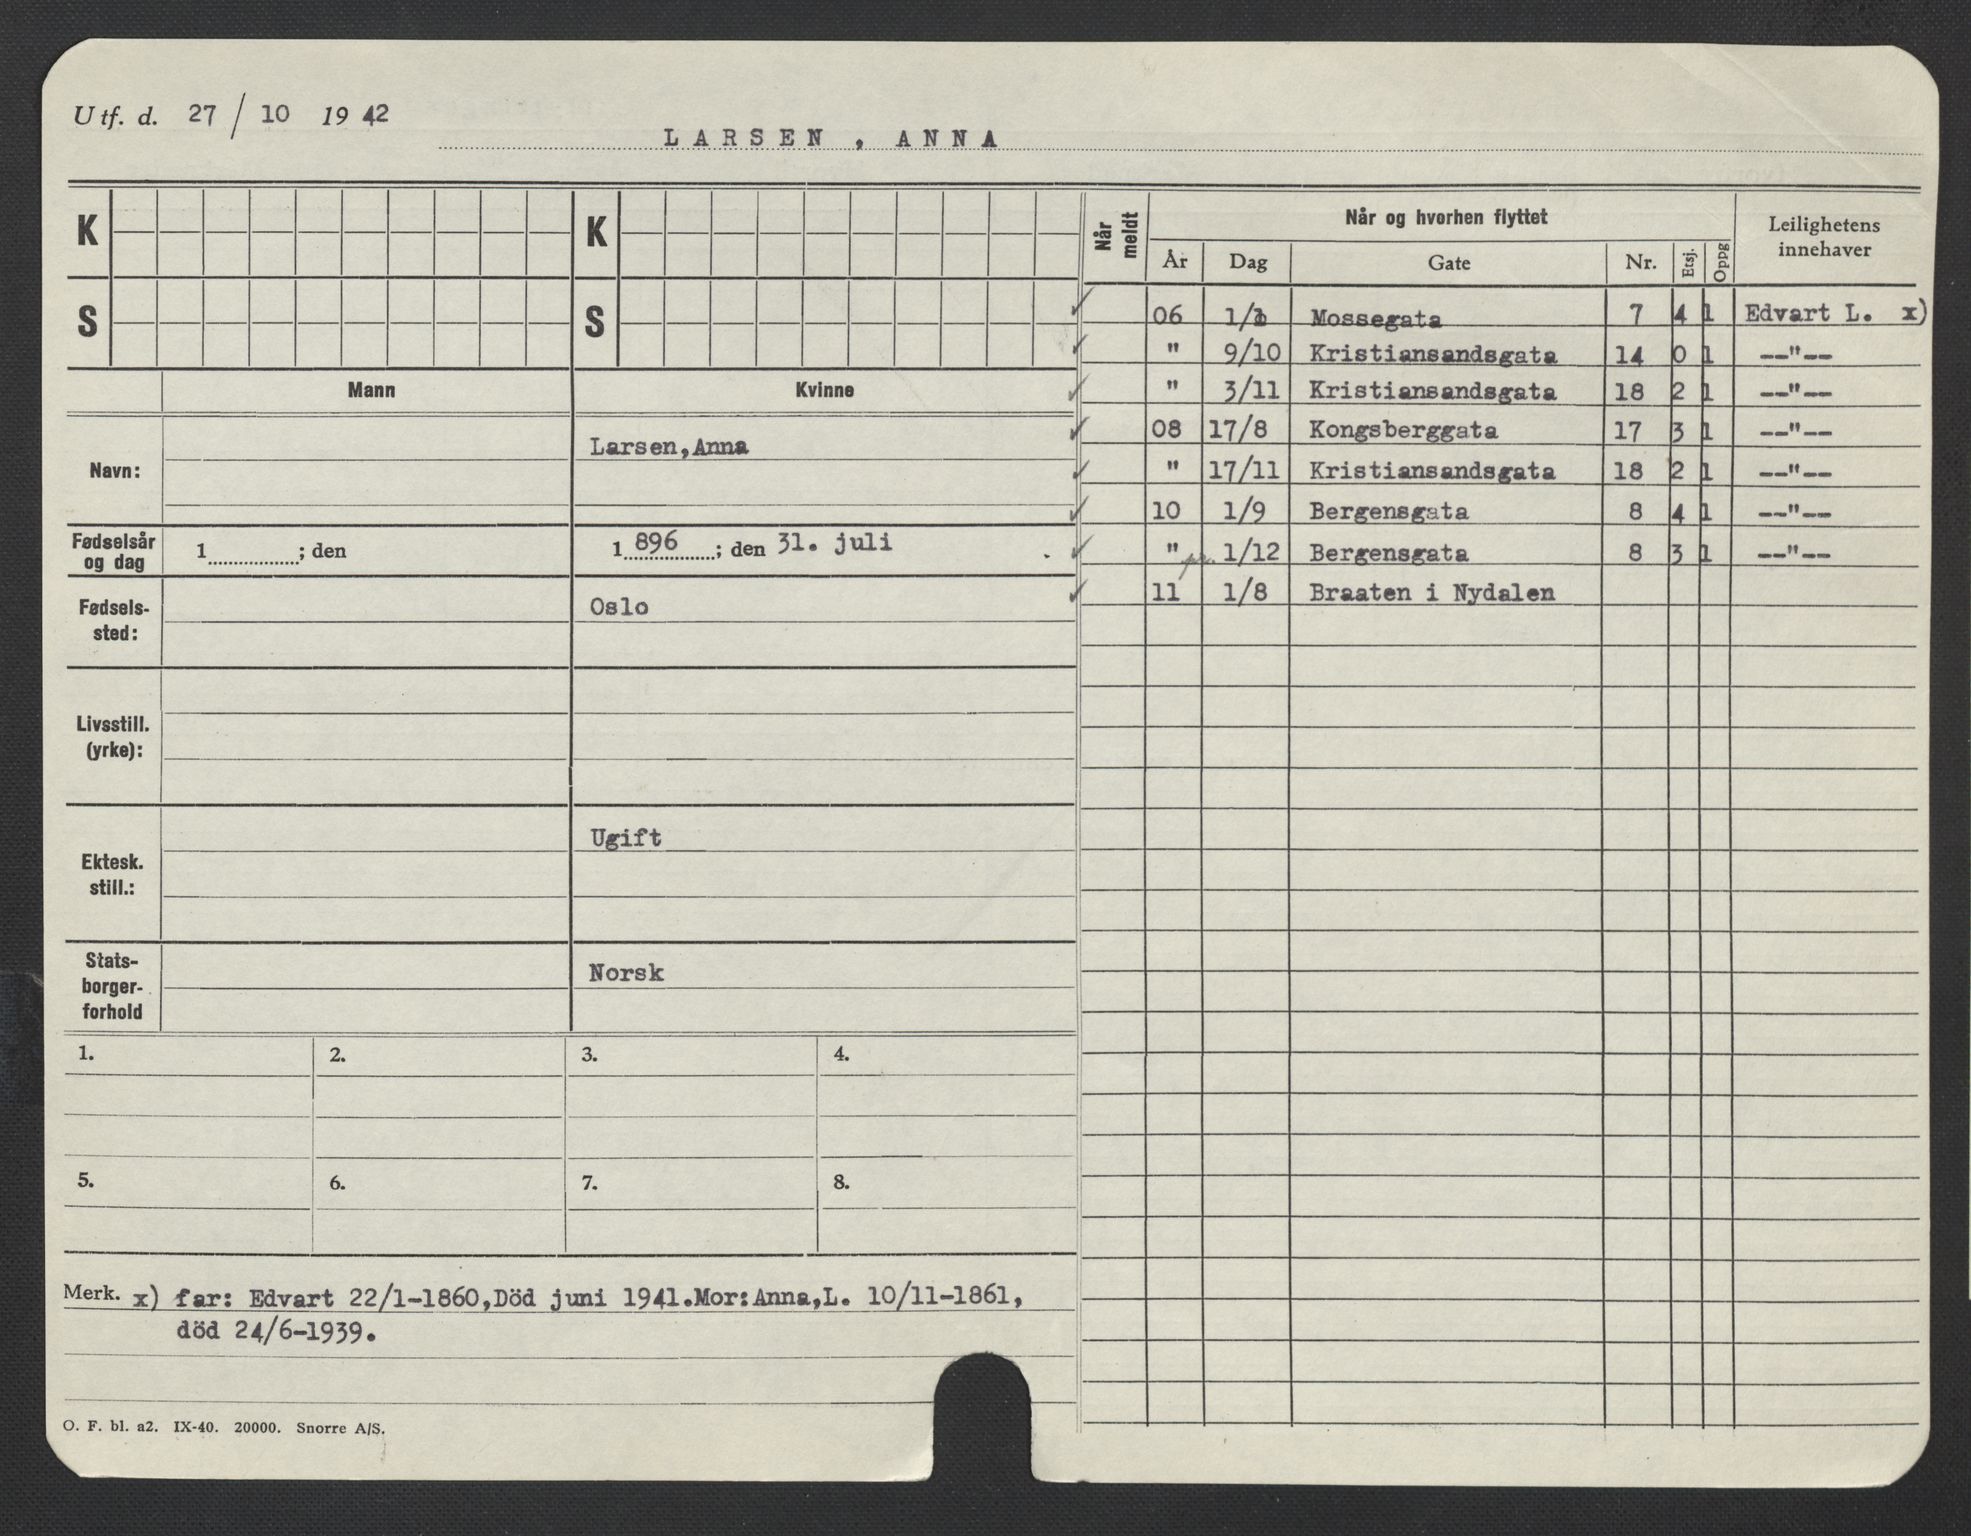 Utf. d. 27 / 10 1942
LARSEN, ANNA
K
K
S
S
Mann
Kvinne
Navn:
Larsen,Anna
Fødselsår og dag
1 ; den
1 896 ; den 31. juli
Fødsels-
sted:
Oslo
Livsstill.
(yrke):
Ektesk.
still.:
Ugift
Stats-
borger-
forhold
Norsk
1. 2. 3. 4.
5. 6. 7. 8.
Merk. x) far: Edvart 22/1-1860,Död juni 1941.Mor:Anna,L. 10/11-1861,
död 24/6-1939.
O. F. bl. a2. IX-40. 20000. Snorre A/S.
Når meldt
Når og hvorhen flyttet
Leilighetens
innehaver
År Dag Gate Nr. Etsj. Oppg
06 Mossegata 7 4 1 Edvart L. x)
" 9/10 Kristiansandsgata 14 0 1 --"--
" 3/11 Kristiansandsgata 18 2 1 --"--
08 17/8 Kongsberggata 17 3 1 --"--
" 17/11 Kristiansandsgata 18 2 1 --"--
10 1/9 Bergensgata 8 4 1 --"--
" pr. 1/12 Bergensgata 8 3 1 --"--
11 1/8 Braaten i Nydalen